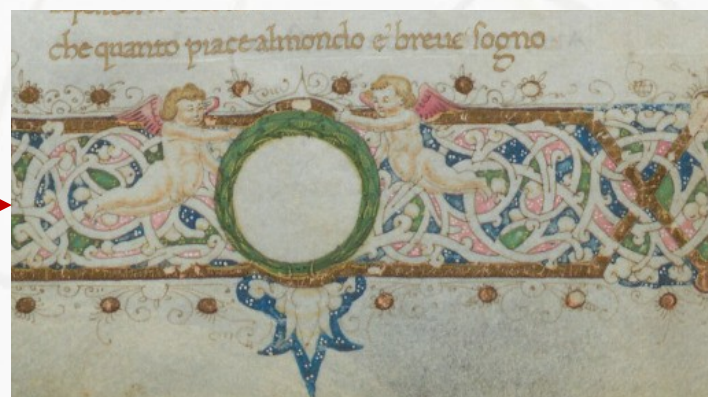 che quanto piace almondo e' breue sogno